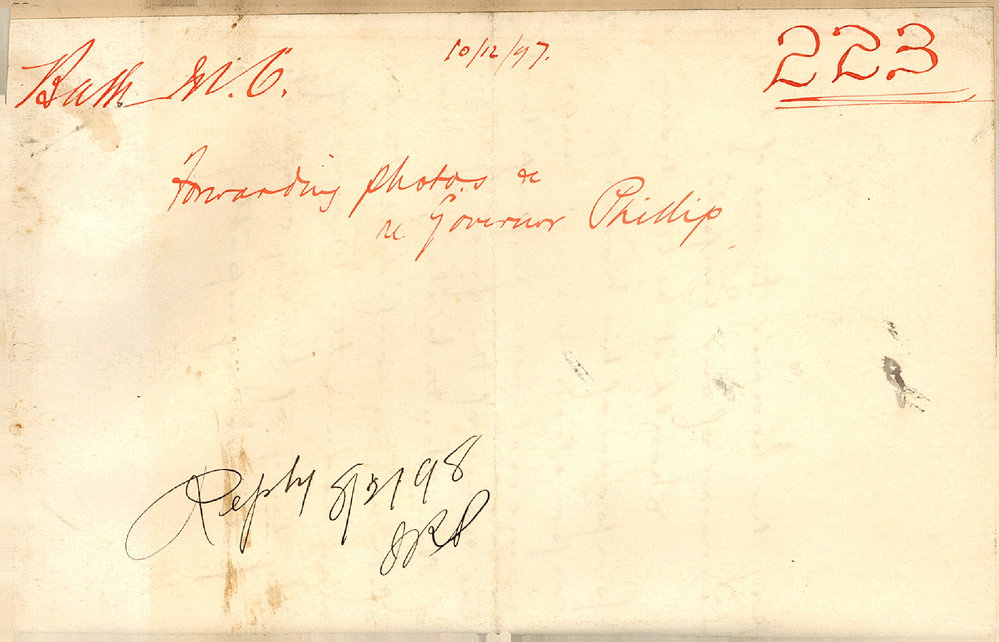 Bath M.C. 10/12/97. 223
Forwarding photos &c
re Governor Phillip
Reply 8/2/98